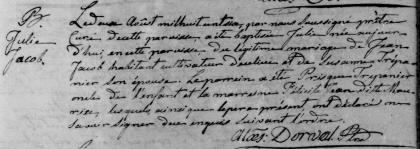 B.
Julie
Jacob
Le deux Aout mil huit cent onze, par nous soussigné prêtre
Curé de cette paroisse, a été baptisée Julie née aujour
d'hui, en cette paroisse, du légitime mariage de Jean
Jacob habitant cultivateur de ce lieu et de Susanne Trépa-
nier son épouse. Le parrain a été Prisque Trépanier
oncle de l'enfant et la marraine Félicité Jean dit
lesquels ainsi que le père présent ont déclaré ne
savoir signer de ce enquis suivant l'ordce.
Alexs. Dorval Ptre